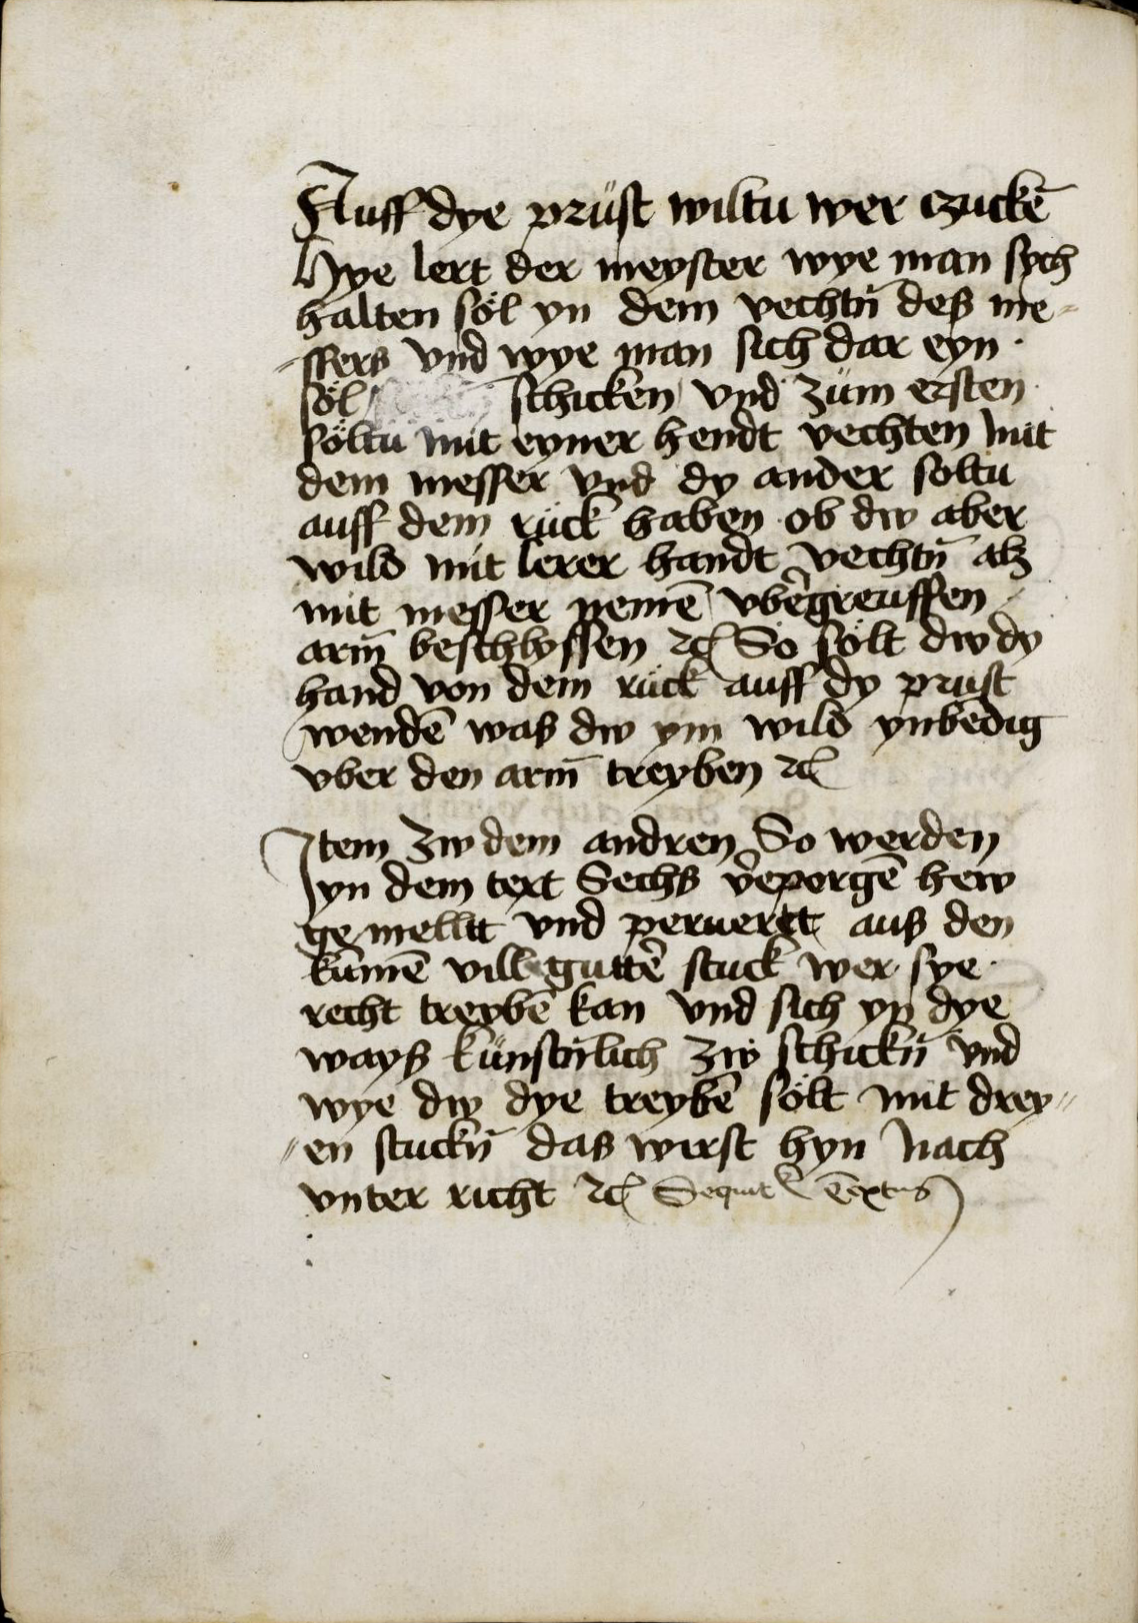 Auff dye prüst wiltu wer czuckē
Hye lert der meyster wye man sych
halten söl yn dem vechtn̄ deß me-
-ssers vnd wye man sich dar eyn
söl schicken vnd züm ersten
söltu mit eyner hendt vechten mit
dem messer vnd dy ander soltu
auff dem rück haben ob dw aber
wild mit lerer handt vechtn̄ alz
mit messer nemē vbe᷑greuffen
arm̄ beschlyssen ⁊c̄ So sölt dw dy
hand von dem rück auff dy prust
wendē waß dw ym wild ynbēdig
vber den arm̄ treyben ⁊c̄
Item zw dem andren So werden
yn dem text Sechß v᷑eporgē hew
ge mellt vnd peruertt auß den
kūmē vill gutte᷑ stuck wer sye
recht treybē kan vnd sich yn dye
wayß künstn̄lich zw schickn̄ vnd
wye dw dye treybē sölt mit drey-
-en stuckn̄ daß wirst hyn nach
vnter richt ⁊c̄ Sequit᷑ textus